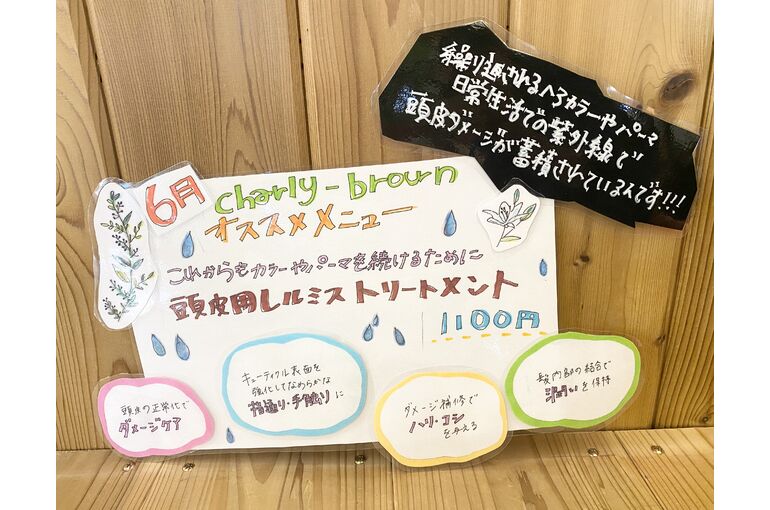 繰り返されるヘアカラーやパーマ
日常生活での紫外線で
頭皮ダメージが蓄積されているんです!!!
6月
charly-brown
オススメメニュー
これからもカラーやパーマを続けるために
頭皮用レルミストリートメント
1100円
頭皮の正常化で
ダメージケア
キューティクル表面を
強化してなめらかな
指通り・手触りに
ダメージ補修で
ハリ・コシ
を与える
髪内部の結合で
を保持